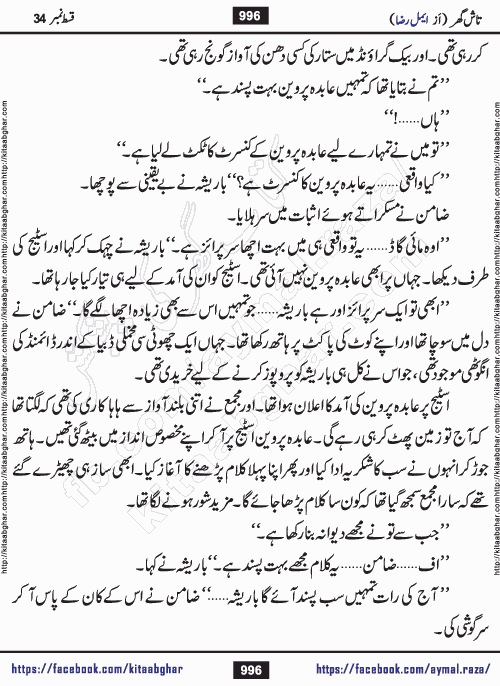 تاش گھر (از ایمل رضا)
996
قسط نمبر 34
کر رہی تھی۔ اور بیک گراؤنڈ میں ستار کی کسی دھن کی آواز گونج رہی تھی۔
”تم نے بتایا تھا کہ تمہیں عابدہ پروین بہت پسند ہے۔“
”ہاں……!“
”تو میں نے تمہارے لیے عابدہ پروین کے کنسرٹ کا ٹکٹ لے لیا ہے۔“
”کیا واقعی…… یہ عابدہ پروین کا کنسرٹ ہے؟“ باریشہ نے بے یقینی سے پوچھا۔
ضامن نے مسکراتے ہوئے اثبات میں سر ہلایا۔
”اوہ مائی گاڈ…… یہ تو واقعی ہی میں بہت اچھا سرپرائز ہے۔“ باریشہ نے چہک کر کہا اور اسٹیج کی
طرف دیکھا۔ جہاں پر ابھی عابدہ پروین نہیں آئی تھی۔ اسٹیج کو ان کی آمد کے لیے ہی تیار کیا جا رہا تھا۔
”ابھی تو ایک سرپرائز اور ہے باریشہ…… جو تمہیں اس سے بھی زیادہ اچھا لگے گا۔“ ضامن نے
دل میں سوچا تھا اور اپنے کوٹ کی پاکٹ پر ہاتھ رکھا تھا۔ جہاں ایک چھوٹی سی مخملی ڈبیا کے اندر ڈائمنڈ کی
انگوٹھی موجود تھی، جو اس نے کل ہی باریشہ کو پروپوز کرنے کے لیے خریدی تھی۔
اسٹیج پر عابدہ پروین کی آمد کا اعلان ہوا تھا۔ اور مجمع نے اتنی بلند آواز سے ہاہا کاری کی تھی کہ لگتا تھا
کہ آج تو زمین پھٹ کر ہی رہے گی۔ عابدہ پروین اسٹیج پر آ کر اپنے مخصوص انداز میں بیٹھ گئی تھیں۔ ہاتھ
جوڑ کر انہوں نے سب کا شکریہ ادا کیا اور پھر اپنا پہلا کلام پڑھنے کا آغاز کیا۔ ابھی ساز ہی چھیڑے گئے
تھے کہ سارا مجمع سمجھ گیا تھا کہ کون سا کلام پڑھا جائے گا۔ مزید شور ہونے لگا تھا۔
”جب سے تو نے مجھے دیوانہ بنا رکھا ہے۔“
”اف…… ضامن…… یہ کلام مجھے بہت پسند ہے۔“ باریشہ نے کہا۔
”آج کی رات تمہیں سب پسند آئے گا باریشہ……“ ضامن نے اس کے کان کے پاس آ کر
سرگوشی کی۔
https://facebook.com/kitaabghar
996
https://facebook.com/aymal.raza/